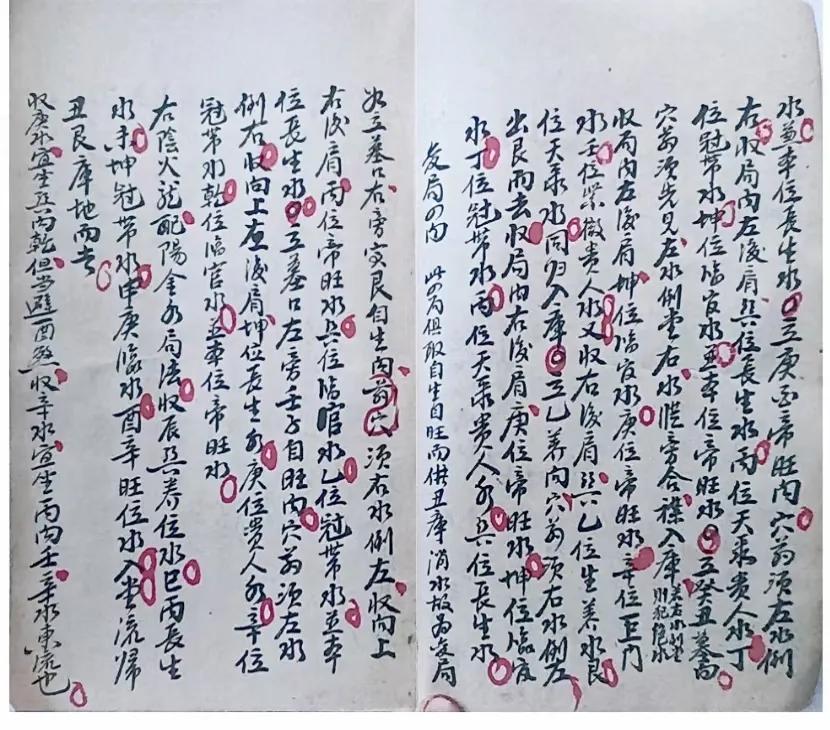 水並本位長生水立庚酉帝旺向穴前須左水倒
右收局內左後肩巽位長生水丙位天乘貴人水丁
位冠帶水坤位臨官水並本位帝旺水立癸丑墓向
穴前須先見左水倒堂右水濚旁合襟入庫
收局內左後肩坤位臨官水庚位帝旺水辛位巨門
水壬位紫微貴人水又收右後肩巽乙位生養水艮
位天乘水同归入庫立乙養向穴前須右水倒左
出艮而去收局內右後肩庚位帝旺水坤位臨官
水丁位冠帶水丙位天乘貴人水巽位長生水
變局四向 此四局但取自生自旺而借丑庫消水故為變局
如立墓口右旁寅艮自生向前穴須右水倒左收向上
右後肩丙位帝旺水巽位臨官水乙位冠帶水並本
位長生水立墓口左旁壬子自旺向穴前須左水
倒右收向上左後肩坤位長生水庚位貴人水辛位
冠帶水乾位臨官水並本位帝旺水
右陰火龍配陽金水局法收辰巽養位水巳丙長生
水未坤冠帶水申庚臨水酉辛旺位水入堂流歸
丑艮庫地而去
收庚水宜立巽向乾但當避酉煞收辛水宜立丙向壬辛水東流也